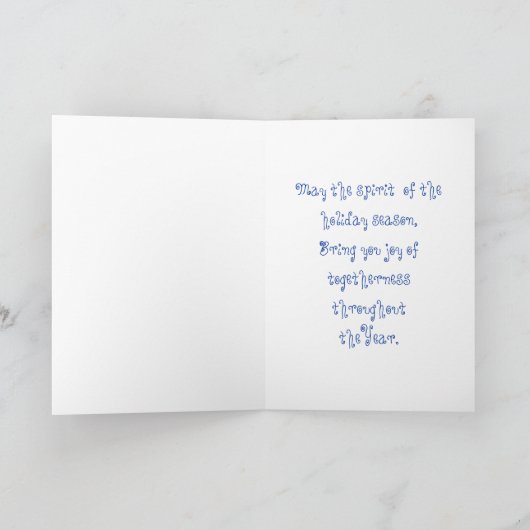 May the spirit of the
holiday season,
Bring you joy of
togetherness
throughout
the Year.